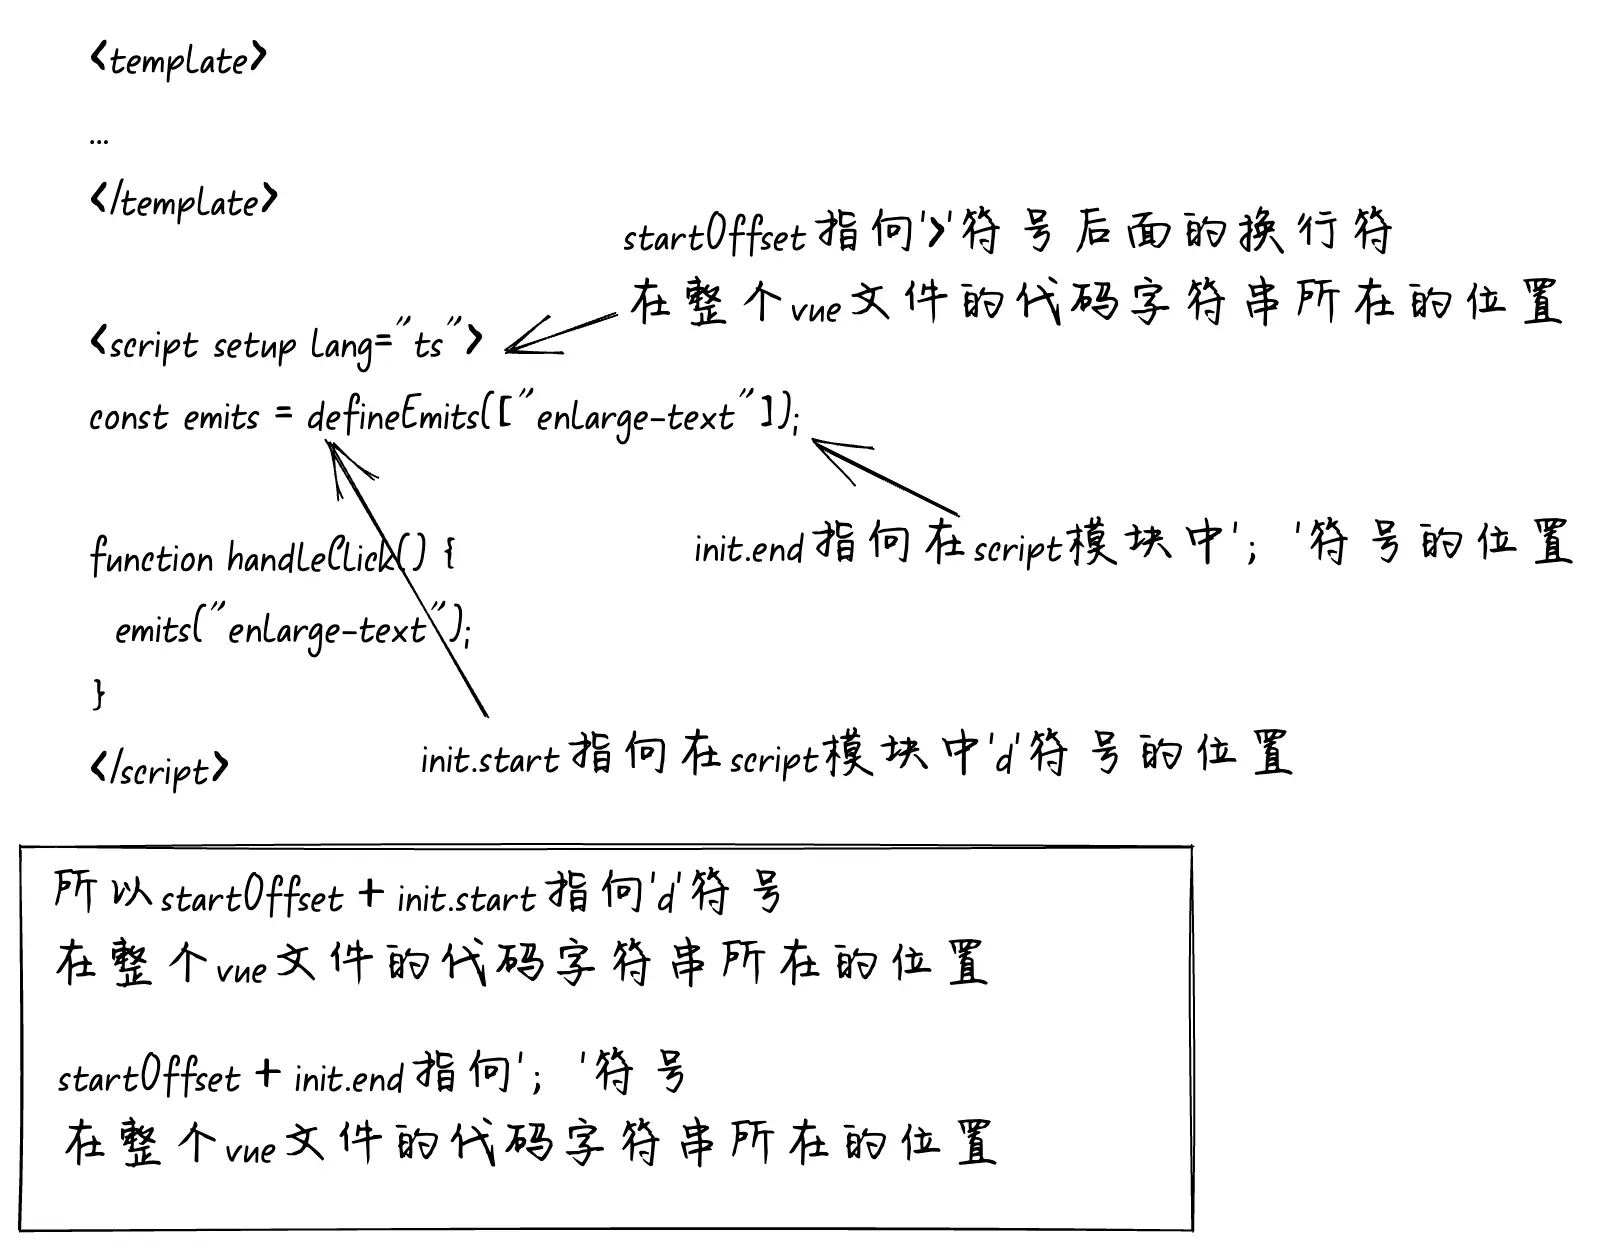 <template>
...
</template>
startOffset指向'>'符号后面的换行符
在整个vue文件的代码字符串所在的位置
<script setup lang="ts">
const emits = defineEmits(["enlarge-text"]);
function handleClick() {
init.end指向在script模块中'；'符号的位置
emits("enlarge-text");
}
init.start指向在script模块中'd'符号的位置
</script>
所以startOffset + init.start指向'd'符号
在整个vue文件的代码字符串所在的位置
startOffset + init.end指向'；'符号
在整个vue文件的代码字符串所在的位置